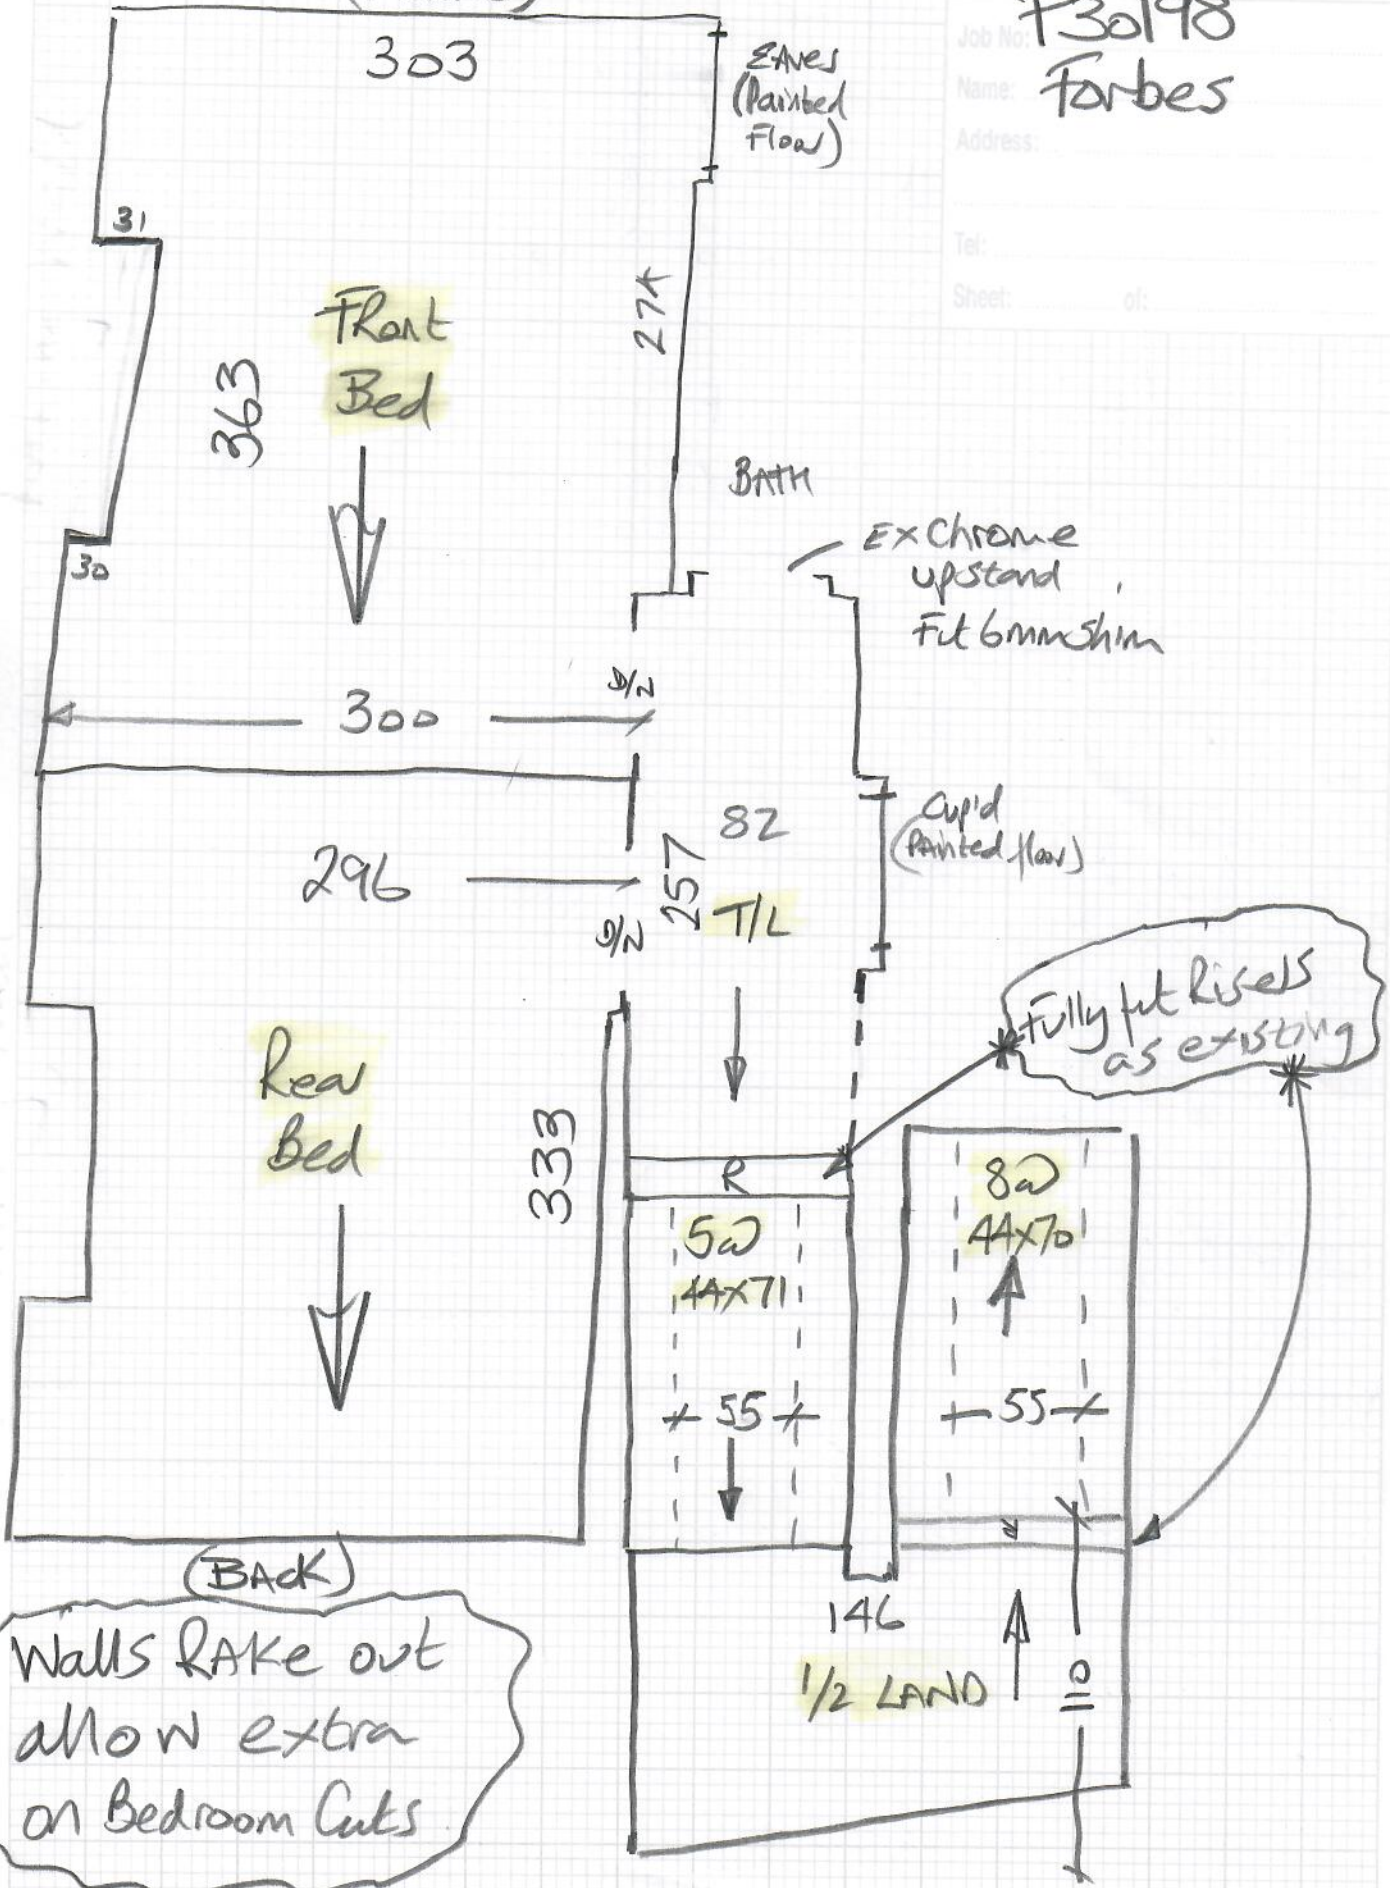 Job No: P30198
Name: Forbes
Address:
Tel:
Sheet: of:
303
Eaves
(Painted
Floor)
31
Front
Bed
363
274
30
BATH
Ex Chrome
upstand
Fit 6mm Shim
D/N
300
296
82
257
T/L
D/N
Cup'd
(Painted floor)
Fully fit Risers
as existing
Rear
Bed
333
R
5W
44x71
55
8W
44x70
55
R
(BACK)
146
1/2 LAND
110
Walls RAKE out
allow extra
on Bedroom Cuts